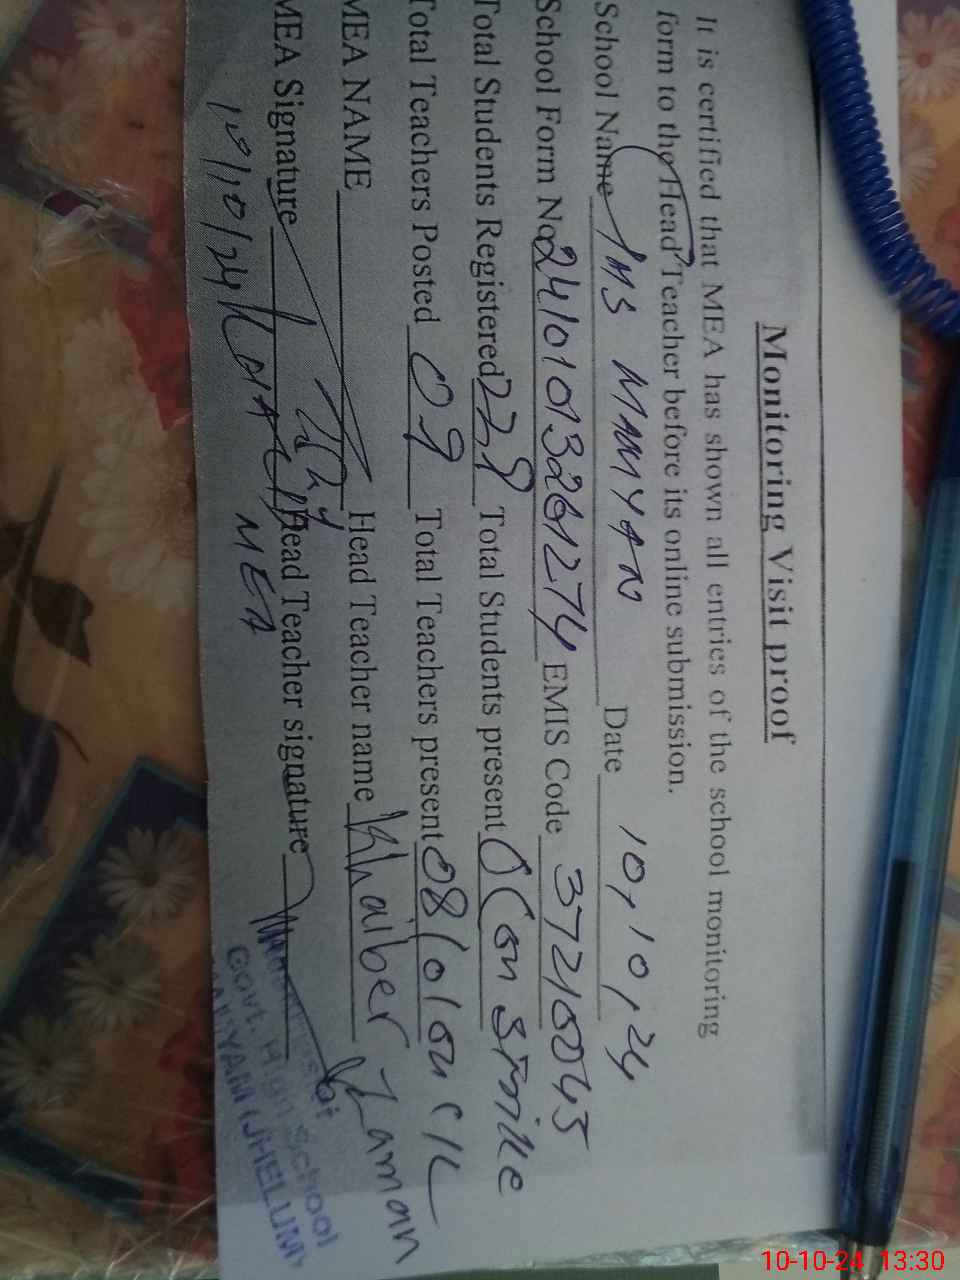 Monitoring Visit proof
It is certified that MEA has shown all entries of the school monitoring
form to the Head Teacher before its online submission.
School Name MAMYAN Date 10,10,24
School Form No 24101013261274 EMIS Code 37210045
Total Students Registered 229 Total Students present 0 (on strike
Total Teachers Posted 09 Total Teachers present 08
MEA NAME Head Teacher name Khaiber Zaman
MEA Signature Head Teacher signature
10/10/24
MEA
Govt. High School
(JHELUM)
10-10-24 13:30